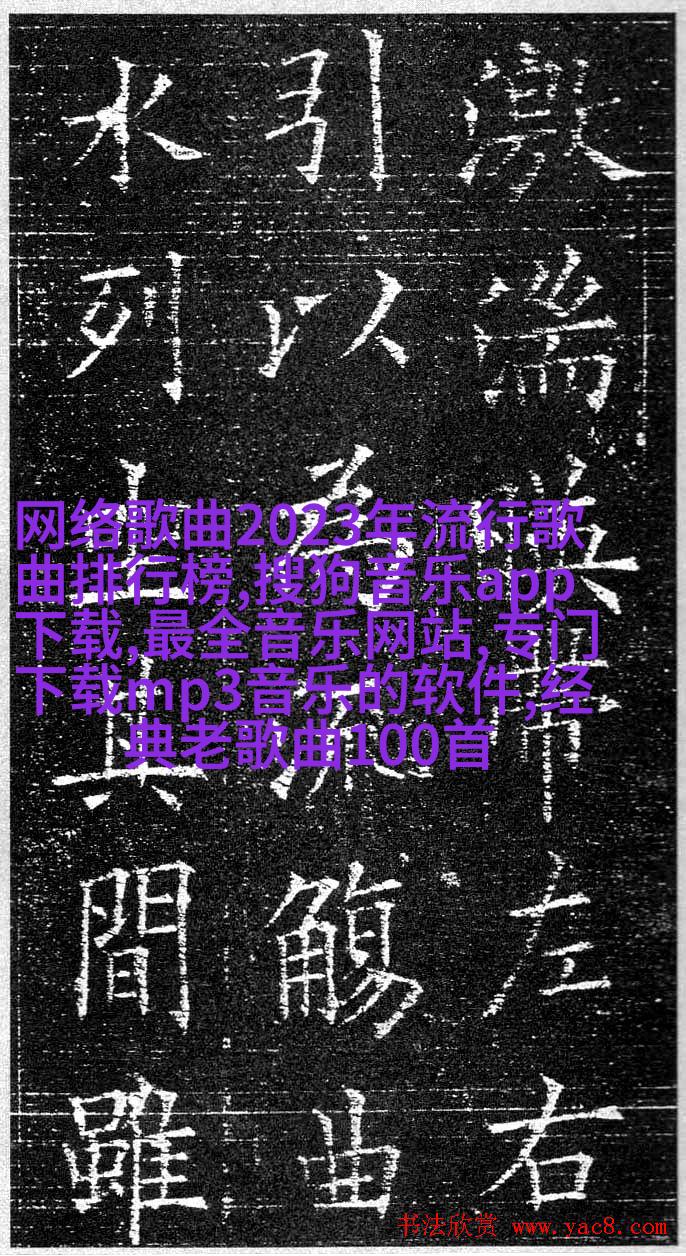 激湍映帶左右
引以為流觴曲
水列坐其間雖
网络歌曲2023年流行歌
曲排行榜,搜狗音乐app
下载,最全音乐网站,专门
下载mp3音乐的软件,经
典老歌曲100首
书法欣赏 www.yac8.com